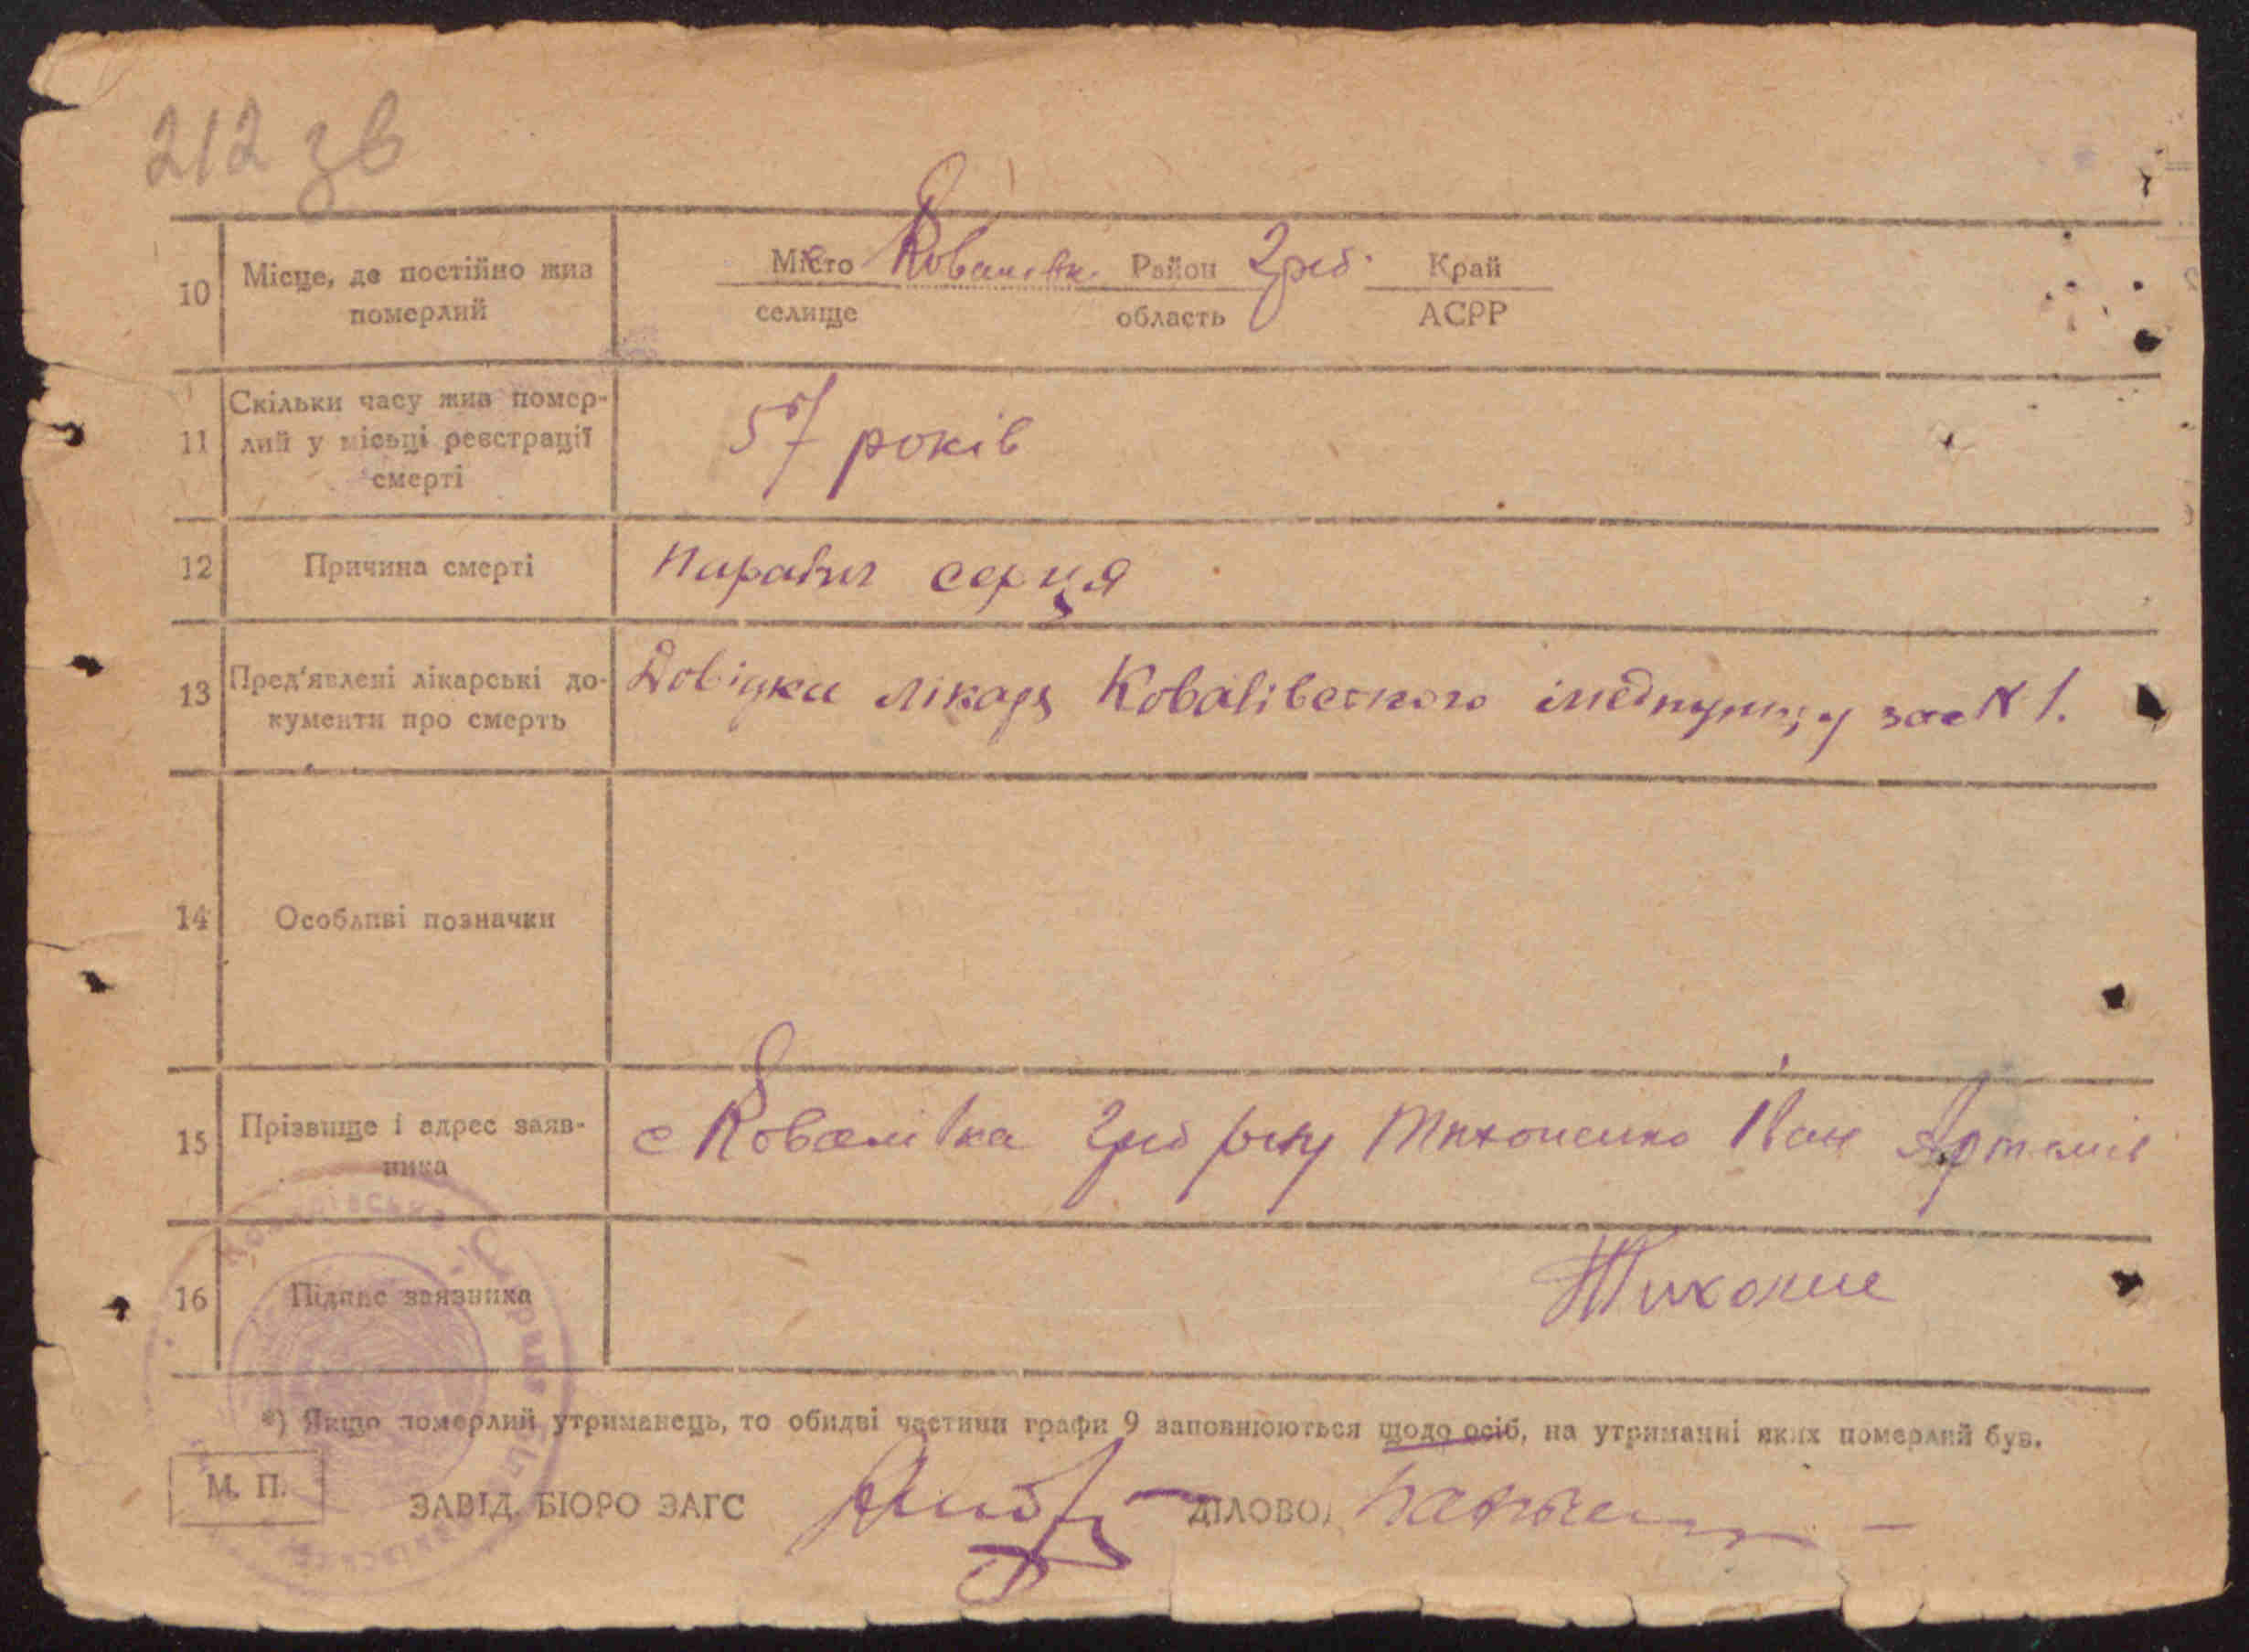 212 зв
10 Місце, де постійно жив померлий
Місто Ковалівка Район Греб. Край
селище область АСРР
11 Скільки часу жив помер-
лий у місьці реєстрації
смерті
57 років
12 Причина смерті Параліч серця
13 Пред'явлені лікарські до-
кументи про смерть
Довідка лікаря Ковалівського медпункту за N 1.
14 Особливі позначки
15 Прізвище і адрес заяв-
ника
с Ковалівка Греб р-ну Тихоненко Іван Артемів
16 Підпис заявника
Тихонне
*) Якщо померлий утриманець, то обидві частини графи 9 заповнюються щодо осіб, на утриманні яких померлий був.
М. П.
ЗАВІД. БЮРО ЗАГС ДІЛОВОД
Ковалівська Сільська